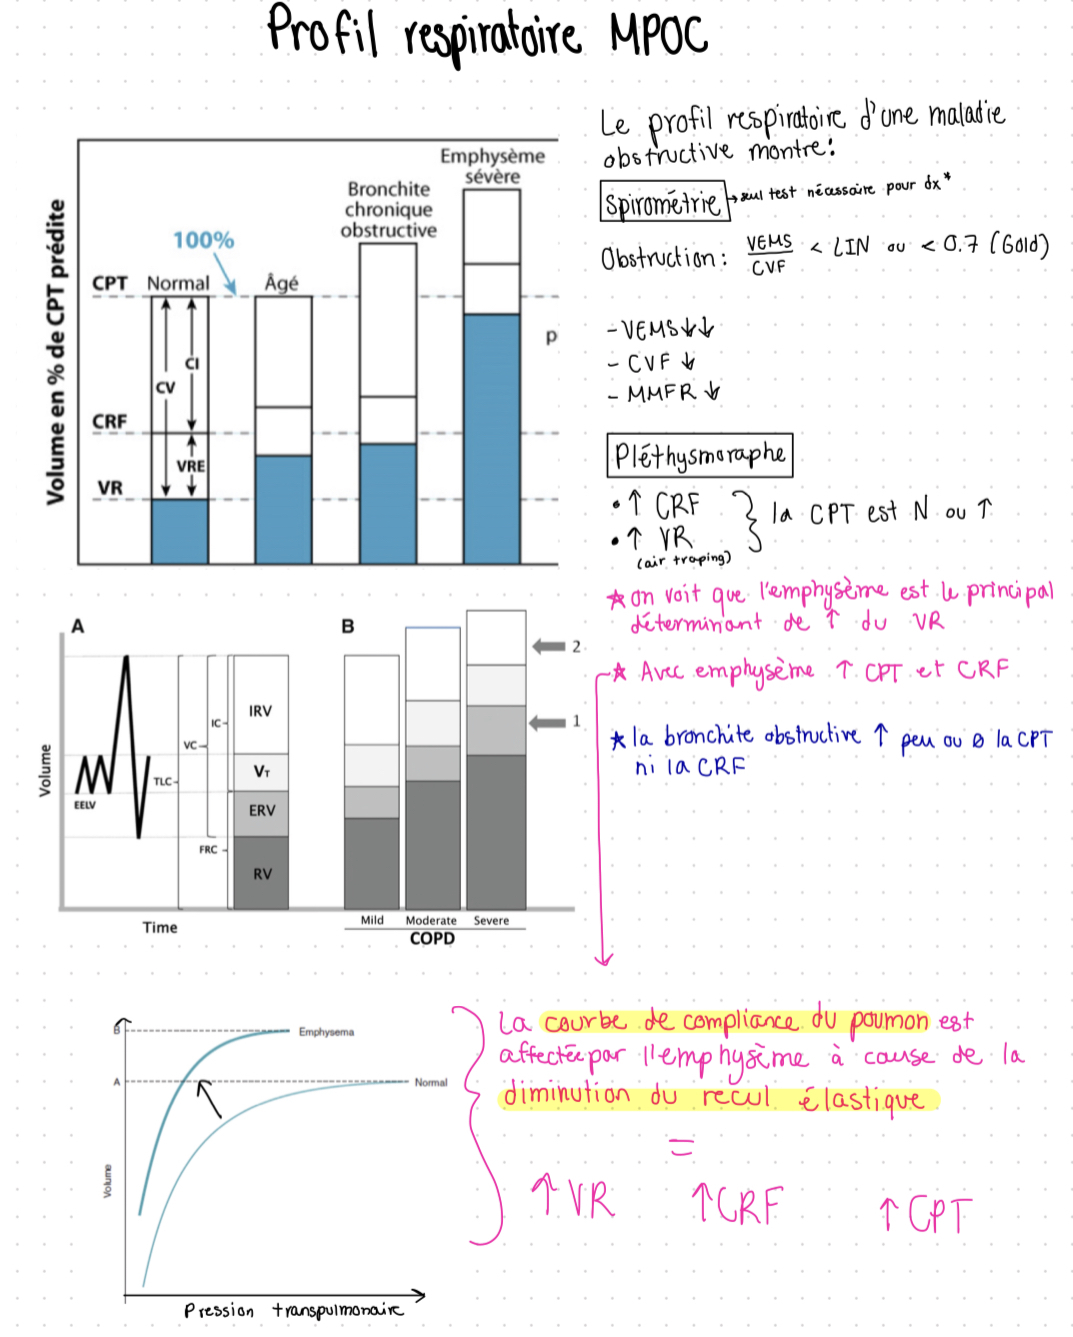 Profil respiratoire MPOC
Le profil respiratoire d'une maladie
obstructive montre:
Spirométrie → seul test nécessaire pour dx*
Obstruction: VEMS/CVF < LIN ou < 0.7 (Gold)
- VEMS ↓↓
- CVF ↓
- MMFR ↓
Pléthysmoraphe
• ↑ CRF
• ↑ VR
(air traping)
} la CPT est N ou ↑
★ on voit que l'emphysème est le principal
déterminant de ↑ du VR
★ Avec emphysème ↑ CPT et CRF
★ la bronchite obstructive ↑ peu ou ø la CPT
ni la CRF
Volume en % de CPT prédite
Emphysème
sévère
Bronchite
chronique
obstructive
100%
CPT Normal Âgé
CI
CV
CRF
VRE
VR
p
A
B
Volume
EELV
IC
VC
TLC
FRC
IRV
VT
ERV
RV
Time
2
1
Mild Moderate Severe
COPD
B
Emphysema
A
Normal
Volume
Pression transpulmonaire
La courbe de compliance du poumon est
affectée par l'emphysème à cause de la
diminution du recul élastique
=
↑ VR ↑ CRF ↑ CPT